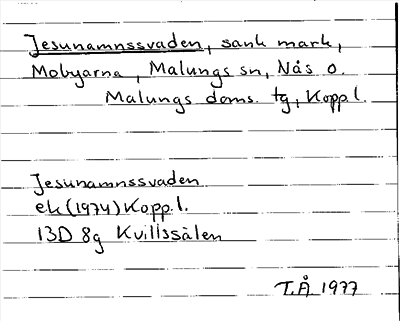 Jesunamnssvaden, sank mark,
Mobyarna, Malungs sn, Nås o.
Malungs doms. tg, Kopp.l.
Jesunamnssvaden
ek (1974) Kopp.l.
13D 8g Kvillssälen
T.Å 1977